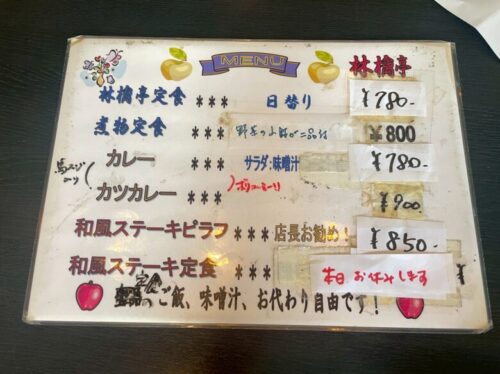 MENU
林檎亭
林檎亭定食 *** 日替り ¥780-
煮物定食 *** 野菜の小鉢が二品付 ¥800
カレー サラダ:味噌汁 ¥780-
カツカレー *** ボリューミー!! ¥900
和風ステーキピラフ *** 店長お勧め! ¥850-
和風ステーキ定食 *** 本日お休みします
定食のご飯、味噌汁、お代わり自由です!